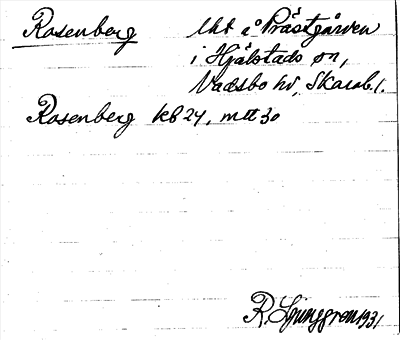 Rosenberg lht å Prästgården
i Hjälstads sn,
Vadsbo hd, Skarab. l.
Rosenberg kb 24, mtt 30
R. Ljunggren 1931